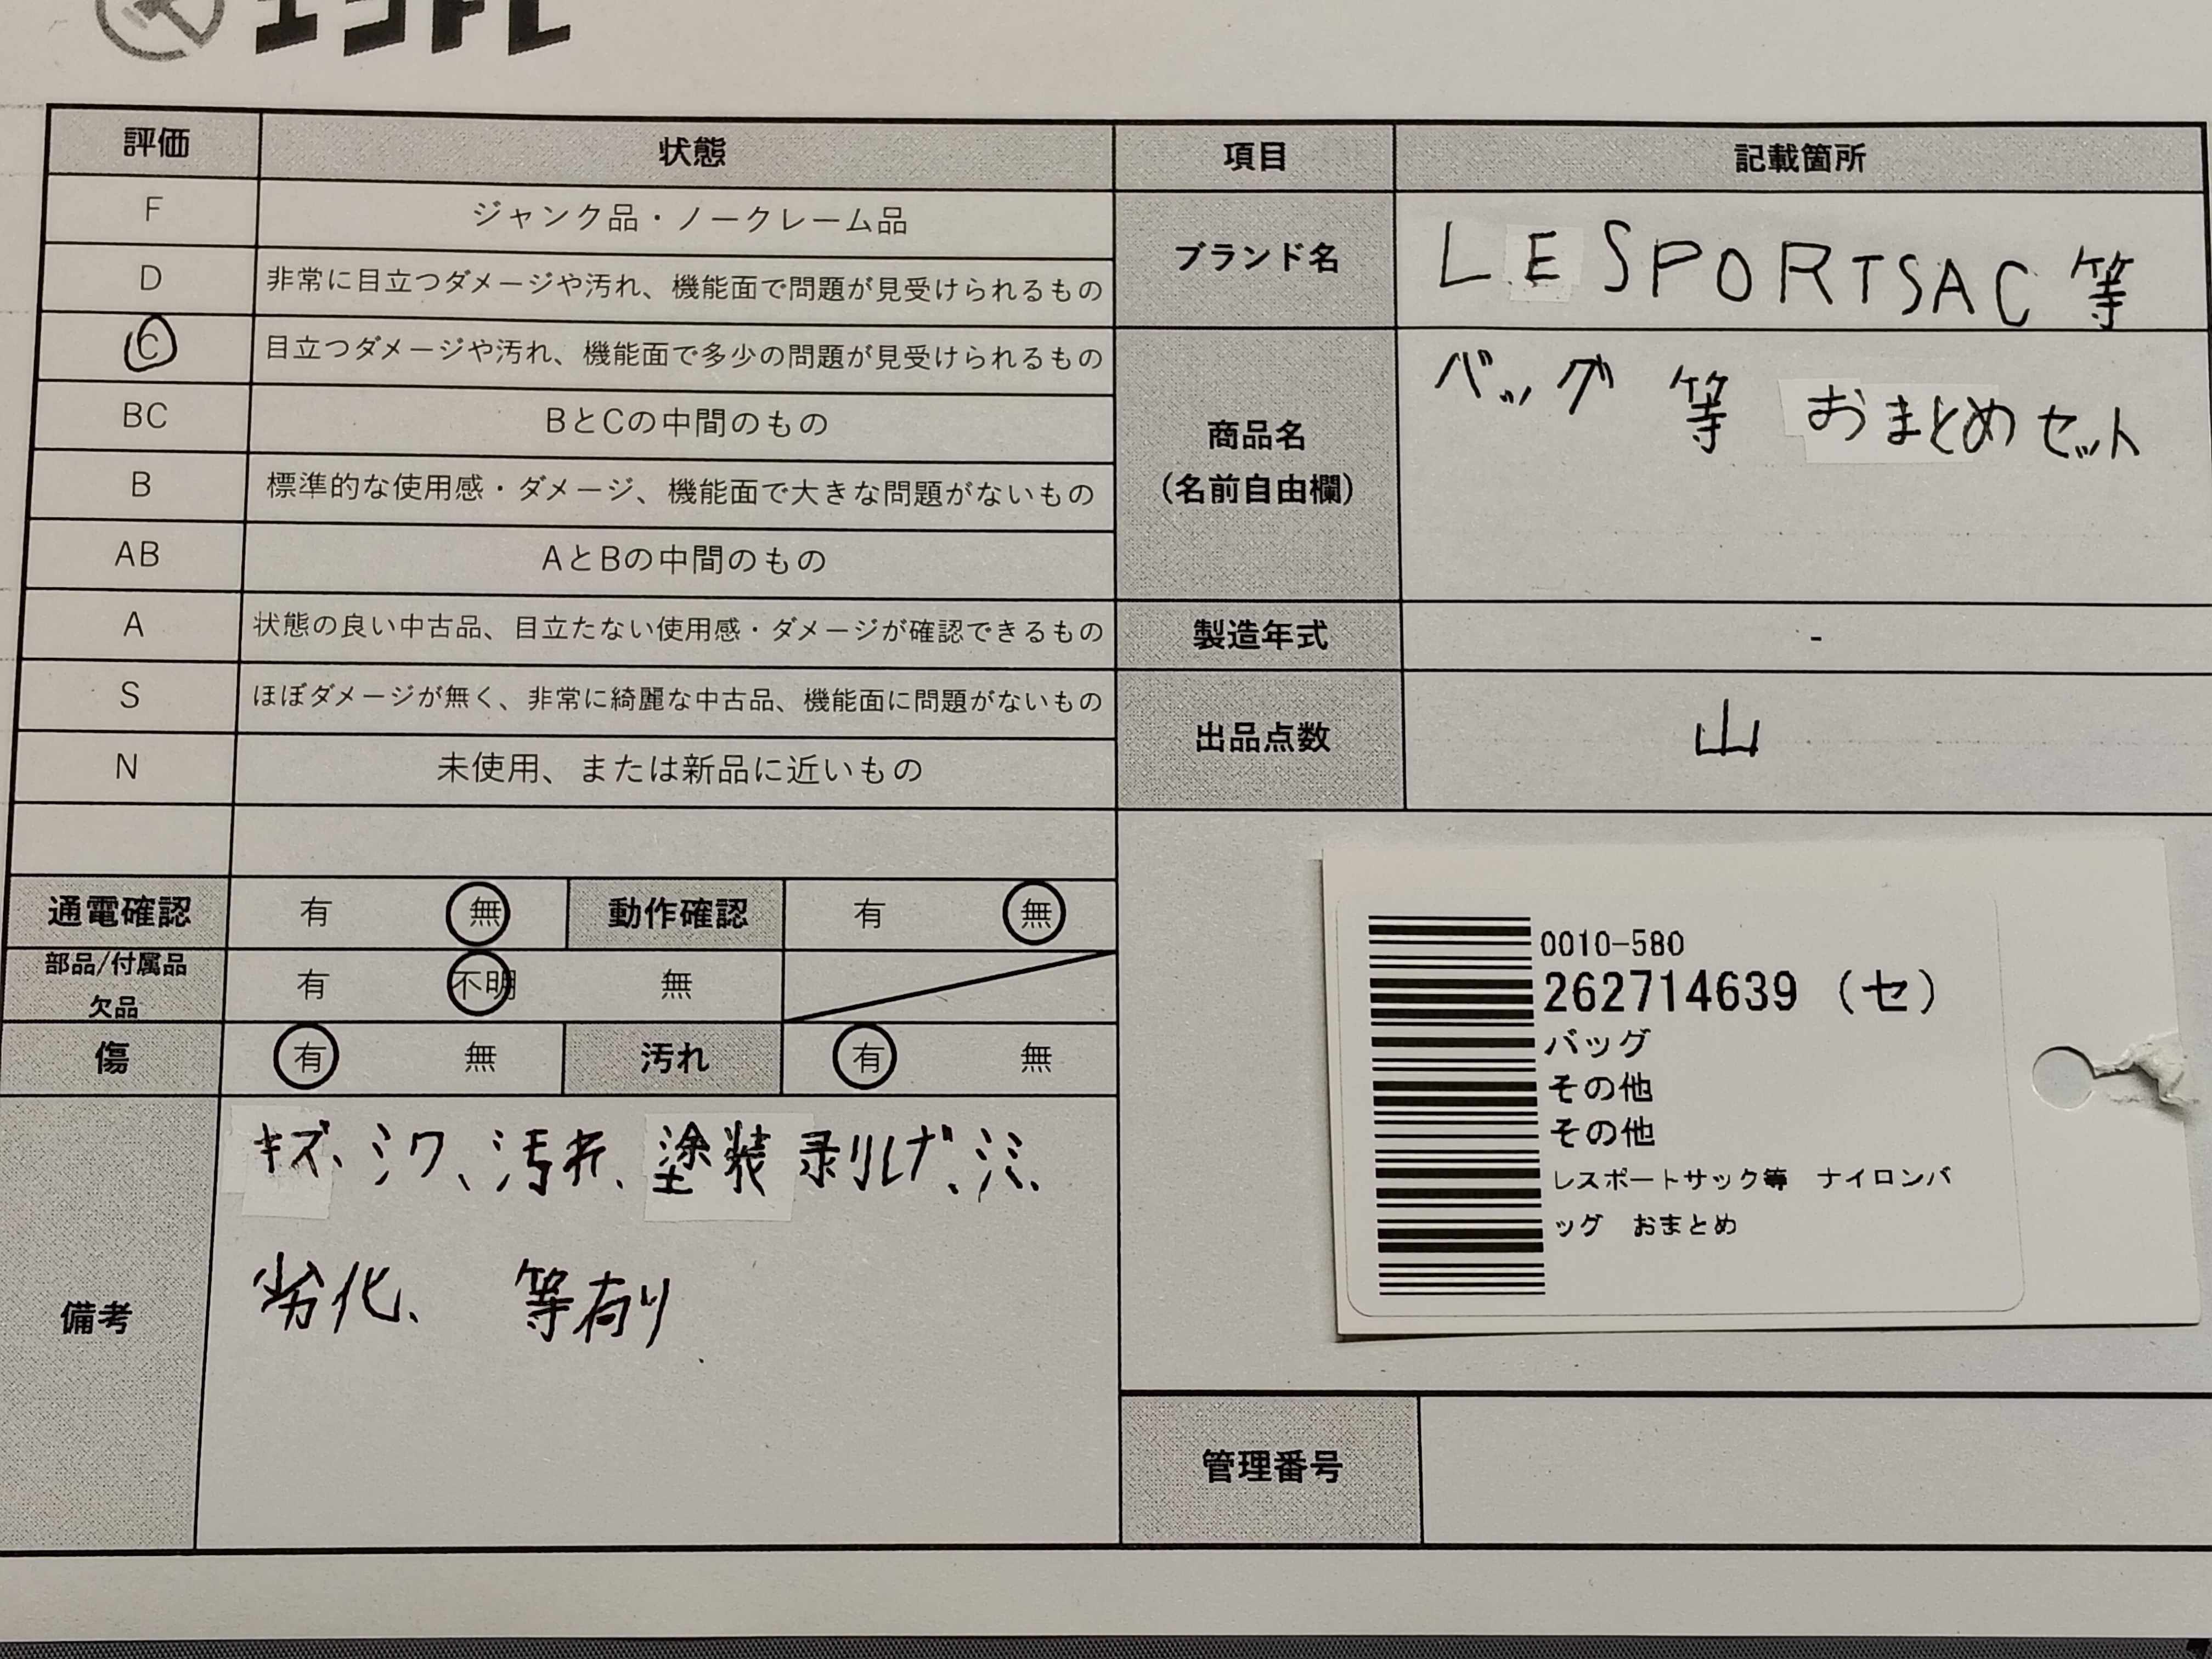 エコトレ
評価 状態 項目 記載箇所
F ジャンク品・ノークレーム品
D 非常に目立つダメージや汚れ、機能面で問題が見受けられるもの
C 目立つダメージや汚れ、機能面で多少の問題が見受けられるもの
BC BとCの中間のもの
B 標準的な使用感・ダメージ、機能面で大きな問題がないもの
AB AとBの中間のもの
A 状態の良い中古品、目立たない使用感・ダメージが確認できるもの
S ほぼダメージが無く、非常に綺麗な中古品、機能面に問題がないもの
N 未使用、または新品に近いもの
ブランド名 LESPORTSAC 等
商品名
(名前自由欄)
バッグ 等 おまとめセット
製造年式 -
出品点数 山
通電確認 有 無 動作確認 有 無
部品/付属品
欠品
有 不明 無
傷 有 無 汚れ 有 無
備考
キズ、シワ、汚れ、塗装剥げ、シミ、
劣化、 等有り
0010-580
262714639 (セ)
バッグ
その他
その他
レスポートサック等 ナイロンバ
ッグ おまとめ
管理番号